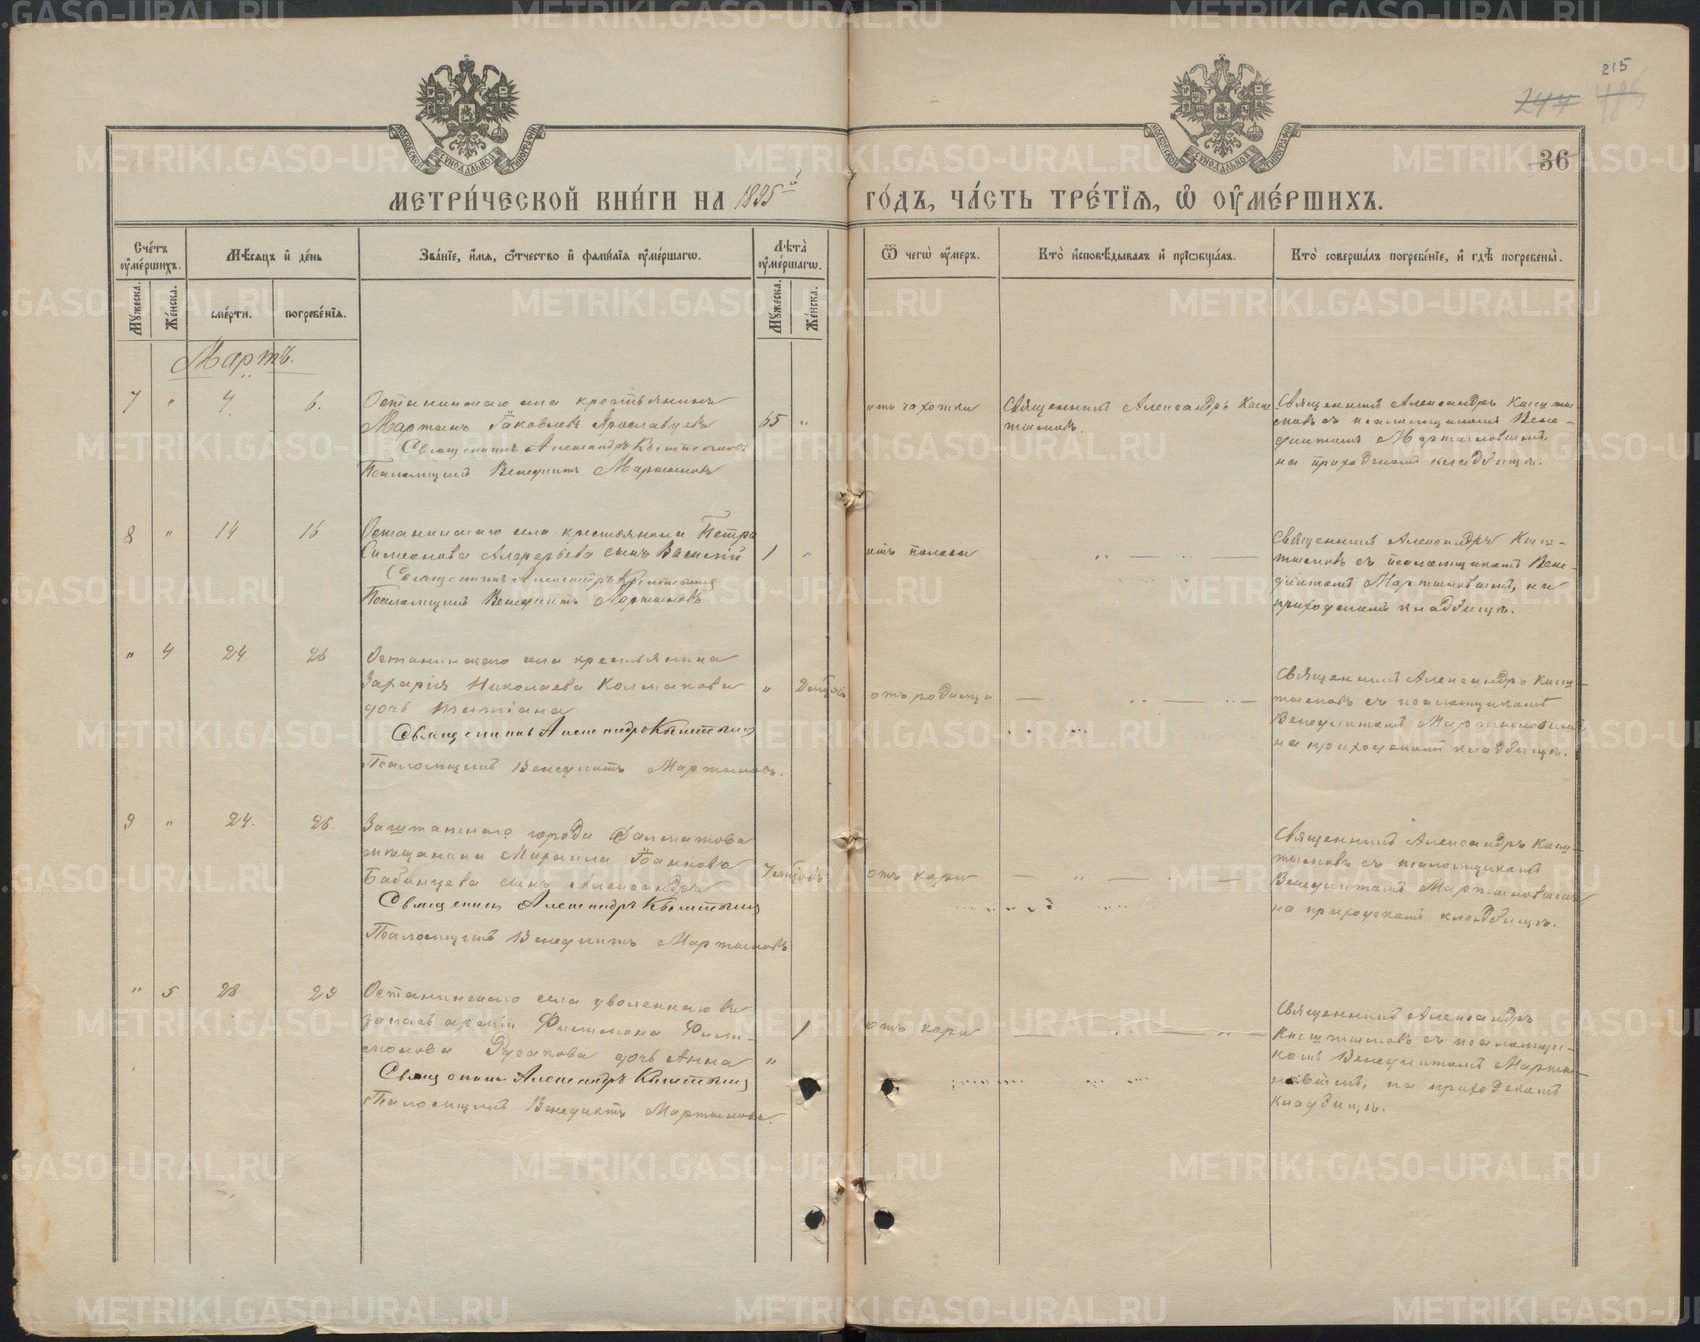 215
244
36
МЕТРИ́ЧЕСКОЙ КНИ́ГИ НА 1895й ГО́ДЪ, ЧА́СТЬ ТРЕ́ТІѦ, Ѡ҆ ОУ҆МЕ́РШИХЪ.
Сче́тъ оу҆ме́ршихъ.
Мѣ́сяцъ и҆ де́нь
Зва́нїе, и҆́мѧ, ѻ҆́тчество и҆ фами́лїѧ оу҆ме́ршагѡ.
Лѣ́та оу҆ме́ршагѡ.
Ѿ чегѡ̀ оу҆́меръ.
Кто̀ и҆сповѣ́дывалъ и҆ прїѡбща́лъ.
Кто̀ соверша́лъ погребе́нїе, и҆ гдѣ̀ погребены̀.
Мꙋ́жеска.
Же́нска.
сме́рти.
погребе́нїѧ.
Мꙋ́жеска.
Же́нска.
Мартъ.
7 " 4 6.
Останинскаго села крестьянинъ
Мартинъ Іаковлевъ Ярославцевъ
Священникъ Александръ Кыштымовъ
Псаломщикъ Венедиктъ Мартыновъ
65 "
отъ чахотки
Священникъ Александръ Кыш-
тымовъ.
Священникъ Александръ Кышты-
мовъ съ псаломщикомъ Вене-
диктомъ Мартыновымъ,
на приходскомъ кладбищѣ.
8 " 14 16
Останинскаго села крестьянина Петра
Симеонова сынъ Василій
Священникъ Александръ Кыштымовъ
Псаломщикъ Венедиктъ Мартыновъ
1 "
отъ поноса
Священникъ Александръ Кыш-
тымовъ съ псаломщикомъ Вене-
диктомъ Мартыновымъ, на
приходскомъ кладбищѣ.
" 4 24 26
Останинскаго села крестьянина
Захарія Николаева Колмакова
дочь Татіана
Священникъ Александръ Кыштымовъ
Псаломщикъ Венедиктъ Мартыновъ.
"
отъ родимца
Священникъ Александръ Кыш-
тымовъ съ псаломщикомъ
Венедиктомъ Мартыновымъ
на приходскомъ кладбищѣ.
9 " 24. 26.
Заштатнаго города Далматова
мѣщанина Михаила Іоаннова
Бабинцева сынъ Александръ
Священникъ Александръ Кыштымовъ
Псаломщикъ Венедиктъ Мартыновъ
отъ кори
Священникъ Александръ Кыш-
тымовъ съ псаломщикомъ
Венедиктомъ Мартыновымъ
на приходскомъ кладбищѣ.
" 5 28 29
Останинскаго села уволеннаго въ
запасъ арміи Филимона Фили-
монова Русакова дочь Анна
Священникъ Александръ Кыштымовъ
Псаломщикъ Венедиктъ Мартыновъ.
" 1
отъ кори
Священникъ Александръ
Кыштымовъ съ псаломщи-
комъ Венедиктомъ Марты-
новымъ, на приходскомъ
кладбищѣ.
METRIKI.GASO-URAL.RU